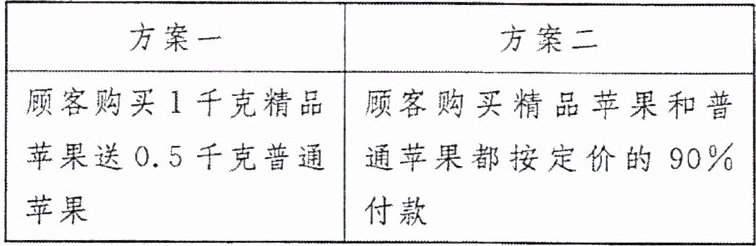 方案一
方案二
顾客购买1千克精品
苹果送0.5千克普通
苹果
顾客购买精品苹果和普
通苹果都按定价的90%
付款